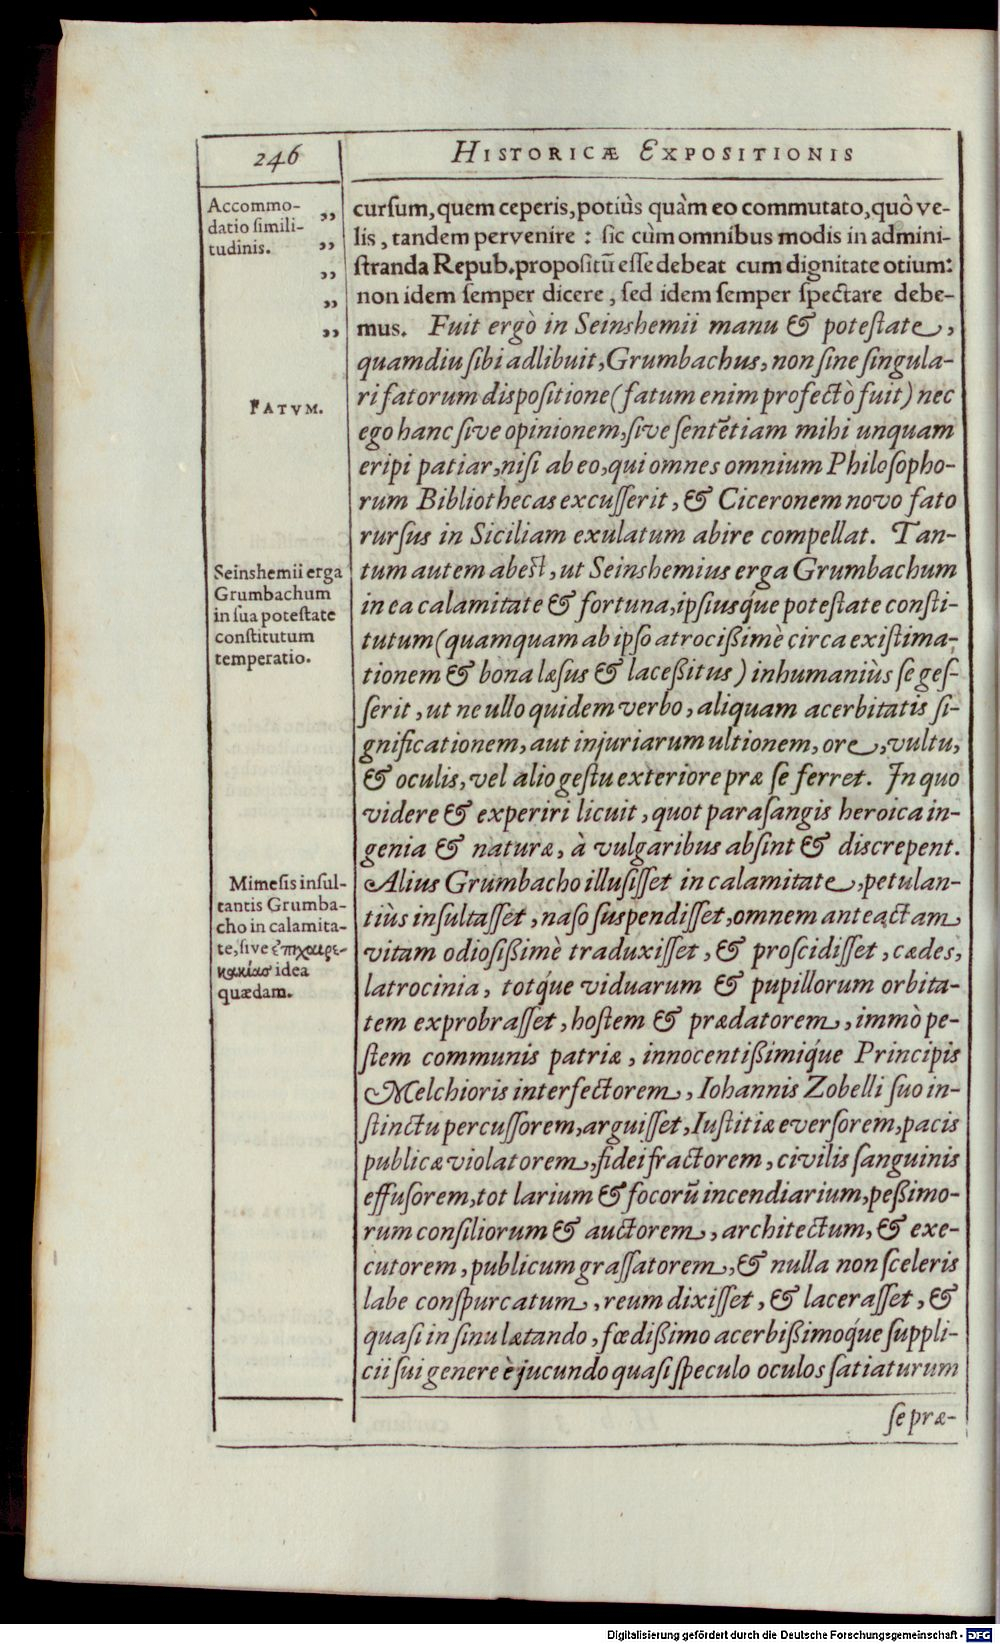 246
HISTORICÆ EXPOSITIONIS
Accommo-
datio simili-
tudinis.
,,
,,
,,
,,
,,
cursum, quem ceperis, potiùs quàm eo commutato, quò ve-
lis, tandem pervenire : sic cùm omnibus modis in admini-
stranda Repub. propositū esse debeat cum dignitate otium:
non idem semper dicere, sed idem semper spectare debe-
mus. Fuit ergò in Seinshemii manu & potestate,
quamdiu sibi adlibuit, Grumbachus, non sine singula-
FATVM.
ri fatorum dispositione (fatum enim profectò fuit) nec
ego hanc sive opinionem, sive sentētiam mihi unquam
eripi patiar, nisi ab eo, qui omnes omnium Philosopho-
rum Bibliothecas excusserit, & Ciceronem novo fato
rursus in Siciliam exulatum abire compellat. Tan-
Seinshemii erga
Grumbachum
in sua potestate
constitutum
temperatio.
tum autem abest, ut Seinshemius erga Grumbachum
in ea calamitate & fortuna, ipsiusq́ue potestate consti-
tutum (quamquam ab ipso atrocißimè circa existima-
tionem & bona læsus & laceßitus) inhumaniùs se ges-
serit, ut ne ullo quidem verbo, aliquam acerbitatis si-
gnificationem, aut injuriarum ultionem, ore, vultu,
& oculis, vel alio gestu exteriore præ se ferret. In quo
videre & experiri licuit, quot parasangis heroica in-
genia & naturæ, à vulgaribus absint & discrepent.
Mimesis insul-
tantis Grumba-
cho in calamita-
te, sive ἐπιχαιρε-
κακίας idea
quædam.
Alius Grumbacho illusisset in calamitate, petulan-
tiùs insultasset, naso suspendisset, omnem anteactam
vitam odiosißimè traduxisset, & proscidisset, cædes,
latrocinia, totq́ue viduarum & pupillorum orbita-
tem exprobrasset, hostem & prædatorem, immò pe-
stem communis patriæ, innocentißimiq́ue Principis
Melchioris interfectorem, Iohannis Zobelli suo in-
stinctu percussorem, arguisset, Iustitiæ eversorem, pacis
publicæ violatorem, fideifractorem, civilis sanguinis
effusorem, tot larium & focorū incendiarium, peßimo-
rum consiliorum & auctorem, architectum, & exe-
cutorem, publicum grassatorem, & nulla non sceleris
labe conspurcatum, reum dixisset, & lacerasset, &
quasi in sinu lætando, fœdißimo acerbißimoq́ue suppli-
cii sui genere è jucundo quasi speculo oculos satiaturum
se præ-
Digitalisierung gefördert durch die Deutsche Forschungsgemeinschaft - DFG